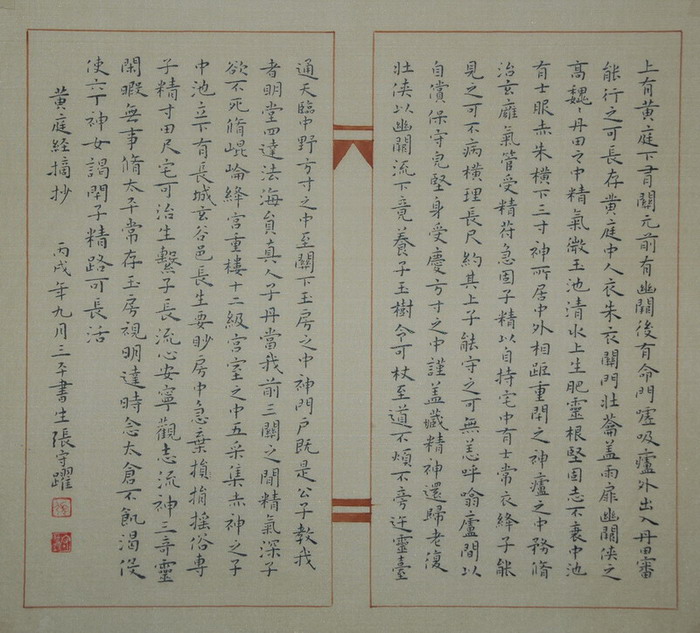 上有黄庭下有關元前有幽關後有命門噓吸廬外出入丹田審
能行之可長存黄庭中人衣朱衣關門壯籥盖兩扉幽關俠之
高魏〻丹田之中精氣微玉池清水上生肥靈根堅固志不衰中池
有士服赤朱横下三寸神所居中外相距重閉之神廬之中務脩
治玄廱氣管受精苻急固子精以自持宅中有士常衣絳子能
見之可不病横理長尺約其上子能守之可無恙呼噏廬間以
自償保守完堅身受慶方寸之中謹盖藏精神還歸老復
壯俠以幽闕流下竟養子玉樹令可杖至道不煩不旁迕靈臺
通天臨中野方寸之中至關下玉房之中神門户既是公子教我
者明堂四達法海員真人子丹當我前三關之間精氣深子
欲不死脩崐崘絳宫重樓十二級宫室之中五采集赤神之子
中池立下有長城玄谷邑長生要眇房中急棄損揺俗專
子精寸田尺宅可治生繫子長流心安寧觀志流神三竒靈
閑暇無事脩太平常存玉房視明達時念太倉不飢渴役
使六丁神女謁閉子精路可長活
黄庭经摘抄 丙戌年九月三平書生張守躍